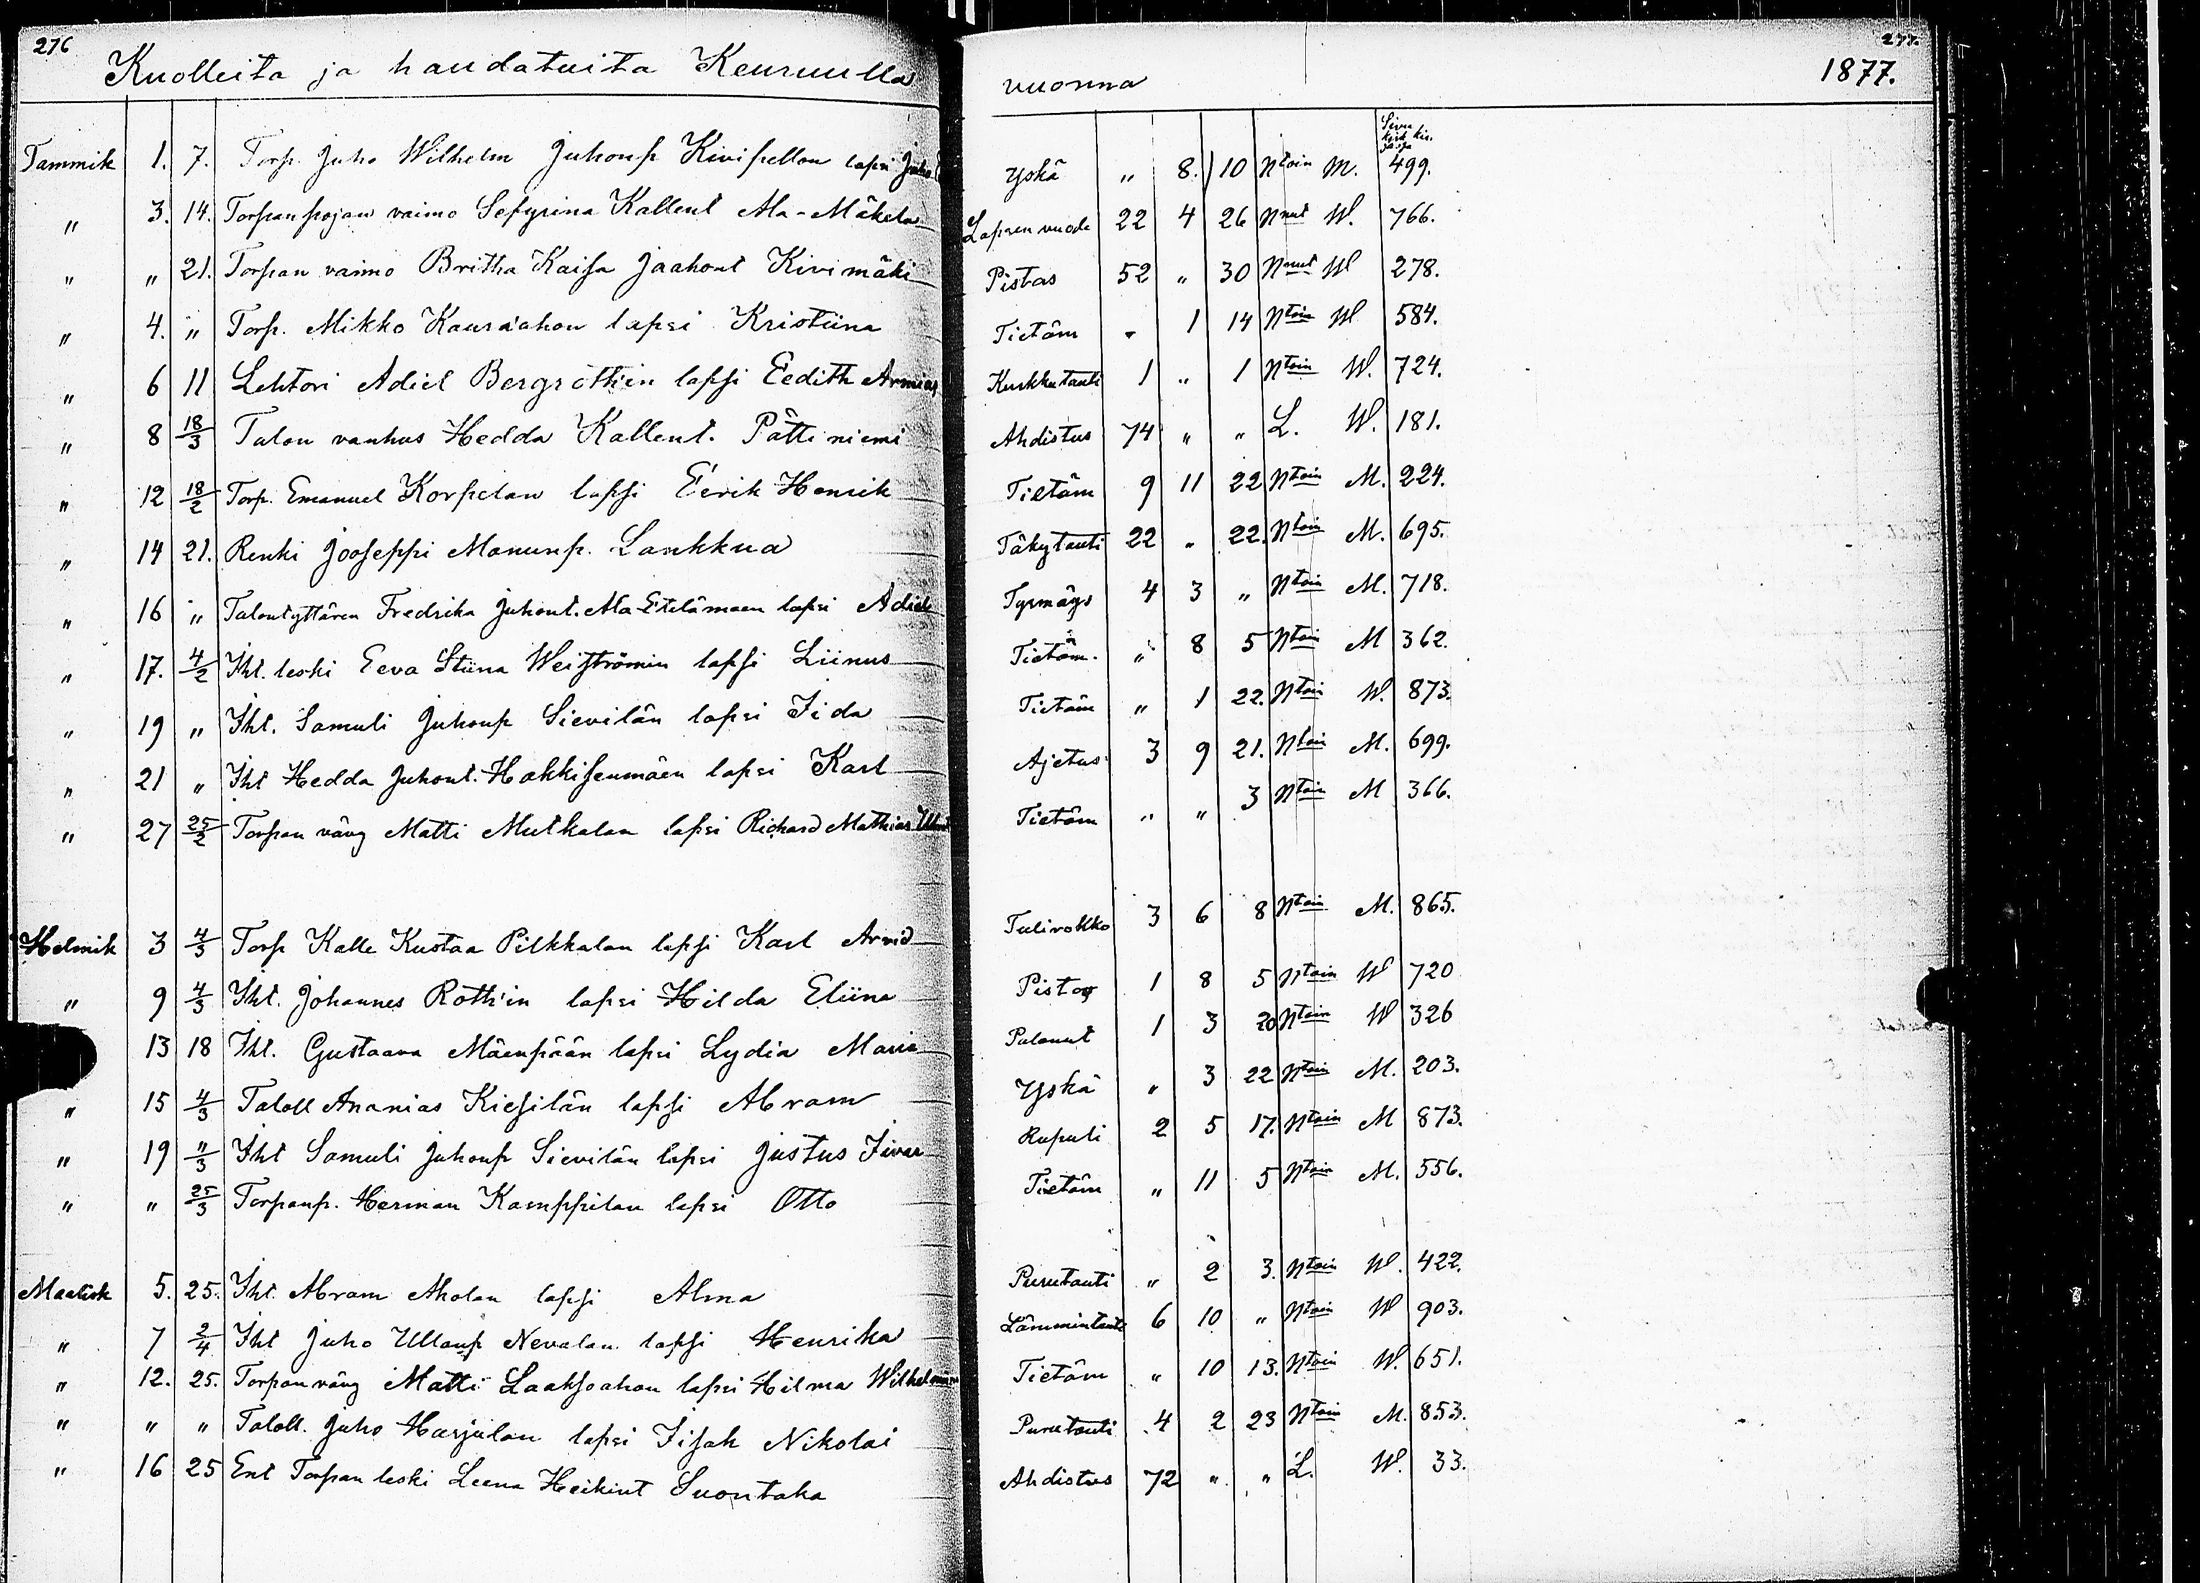 276
Kuolleita ja haudatuita Keuruulla vuonna 1877.
277.
Sivu kirk. kir.
Tammik 1. 7. Torp. Juho Wilhelm Juhonp Kivipellon lapsi Juho Yskä " 8. 10 Ntoin M. 499.
" 3. 14. Torpanpojan vaimo Sefyrina Kallent Ala-Mäkelä Lapsen vuode 22 4 26 Nnut W. 766.
" " 21. Torpan vaimo Britha Kaisa Jaakont Kivimäki Pistos 52 " 30 Nnut W 278.
" 4. " Torp. Mikko Kauraahon lapsi Kristiina Tietäm " 1 14 Ntoin W 584.
" 6 11 Lehtori Adiel Bergröthin lapsi Eedith Armias Kurkkutauti 1 " 1 Ntoin W. 724.
" 8 18/3 Talon vanhus Hedda Kallent. Pättiniemi Ahdistus 74 " " L. W. 181.
" 12 18/2 Torp. Emanuel Korpelan lapsi Eerik Henrik Tietäm 9 11 22 Ntoin M. 224.
" 14 21. Renki Jooseppi Manunp. Lankkua Täkytauti 22 " 22. Ntoin M. 695.
" 16 " Talontyttären Fredrika Juhont. Ala-Etelämäen lapsi Adiel 4 3 " Ntoin M. 718.
" 17. 4/2 Iht. leski Eeva Stiina Weiströmin lapsi Liinus Tietäm. " 8 5 Ntoin M 362.
" 19 " Iht. Samuli Juhonp Sievilän lapsi Iida Tietäm " 1 22. Ntoin W. 873.
" 21 " Iht Hedda Juhont. Hakkisenmäen lapsi Karl Ajetus 3 9 21. Ntoin M. 699.
" 27 25/2 Torpan vävy Matti Mutkalan lapsi Richard Mathias Tietäm " " 3 Ntoin M 366.
Helmik 3 4/3 Torp Kalle Kustaa Pilkkalan lapsi Karl Arvid Tulirokko 3 6 8 Ntoin M. 865.
" 9 4/3 Iht. Johannes Rothin lapsi Hilda Eliina Pistos 1 8 5 Ntoin W 720
13 18 Iht. Gustaava Mäenpään lapsi Lydia Maria Palanut 1 3 20 Ntoin W 326
" 15 4/3 Taloll Ananias Kiesilän lapsi Abram Yskä " 3 22 Ntoin M. 203.
" 19 11/3 Iht Samuli Juhonp Sievilän lapsi Justus Iivar Rupuli 2 5 17. Ntoin M 873.
" " 25/3 Torpanp. Herman Kamppilan lapsi Otto Tietäm " 11 5 Ntoin M. 556.
Maalisk 5. 25. Iht. Abram Aholan lapsi Alma Purutauti " 2 3. Ntoin W. 422.
" 7 2/4 Iht Juho Ullanp Nevalan lapsi Henrika Lämmintauti 6 10 " Ntoin W 903.
" 12. 25. Torpan vävy Matti Laaksoahon lapsi Hilma Wilhelmiina Tietäm " 10 13. Ntoin W. 651.
" " " Taloll. Juho Harjulan lapsi Iisak Nikolai Purutauti 4 2 23 Ntoin M. 853.
" 16 25 Ent Torpan leski Leena Heikint Suontaka Ahdistus 72 " " L. W. 33.